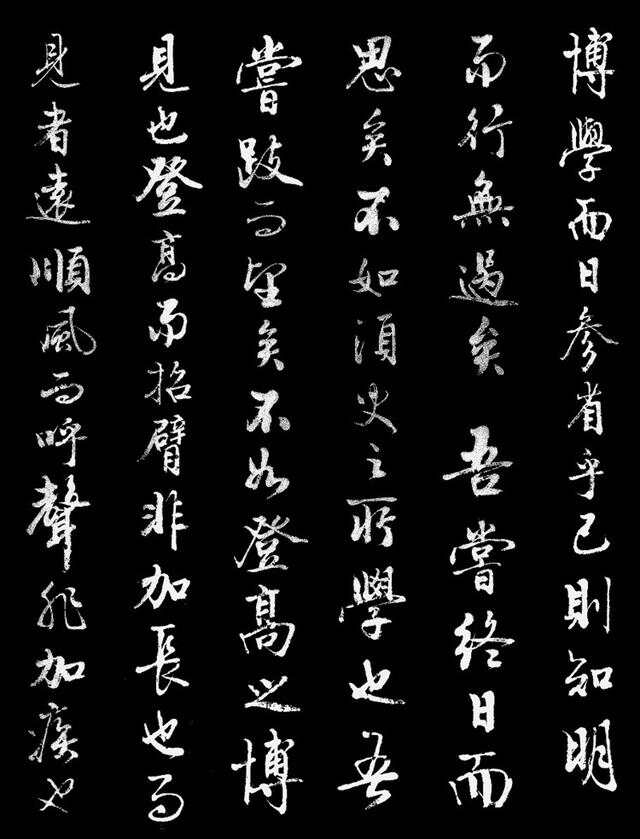 博學而日參省乎己則知明
而行無過矣吾嘗終日而
思矣不如須臾之所學也吾
嘗跂而望矣不如登高之博
見也登高而招臂非加長也而
見者遠順風而呼聲非加疾也